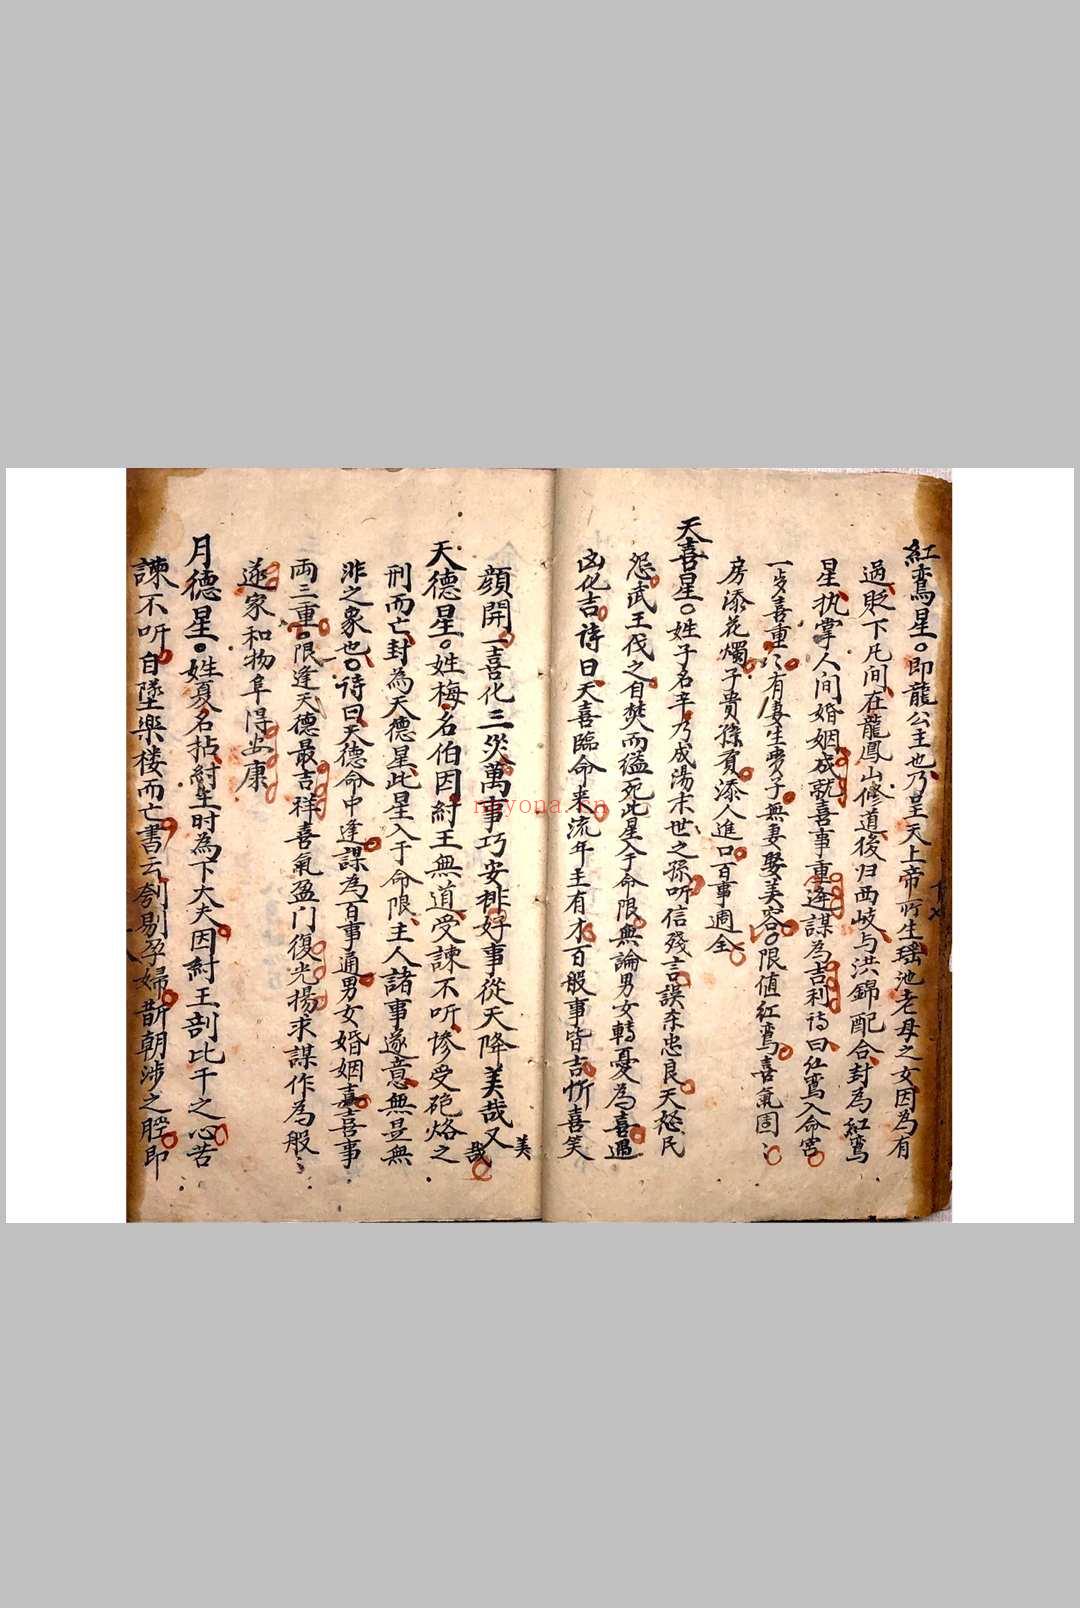 紅鸞星。即龍公主也乃是天上帝所生瑶池老母之女因為有
過貶下凡间在龍鳳山修道後归西岐与洪錦配合封為紅鸞
星执掌人间婚姻成就喜事重逢謀為吉利詩曰紅鸞入命宮
一步喜重〻有妻生貴子無妻娶美容。限值紅鸞喜氣固〻
房添花燭子貴孫賢添人進口百事週全
天喜星。姓子名辛乃成湯末世之孫听信殘言誤杀忠良天愁民
怨武王伐之自焚而縊死此星入于命限無論男女轉憂為喜遇
凶化吉詩曰天喜臨命来流年主有才百般事皆吉忻喜笑
顔開一喜化三災萬事巧安排好事從天降美哉又美哉
天德星。姓梅名伯因紂王無道受諫不听惨受砲烙之
刑而亡封為天德星此星入于命限主人諸事遂意無是無
非之象也。詩曰天德命中逢謀為百事通男女婚姻嘉喜事
両三重。限逢天德最吉祥喜氣盈门復光揚求謀作為般〻
遂家和物阜得安康
月德星。姓夏名拈紂生时為下大夫因紂王剖比干之心苦
諫不听自墜樂楼而亡書云刳剔孕婦斮朝涉之脛即
nayona.cn